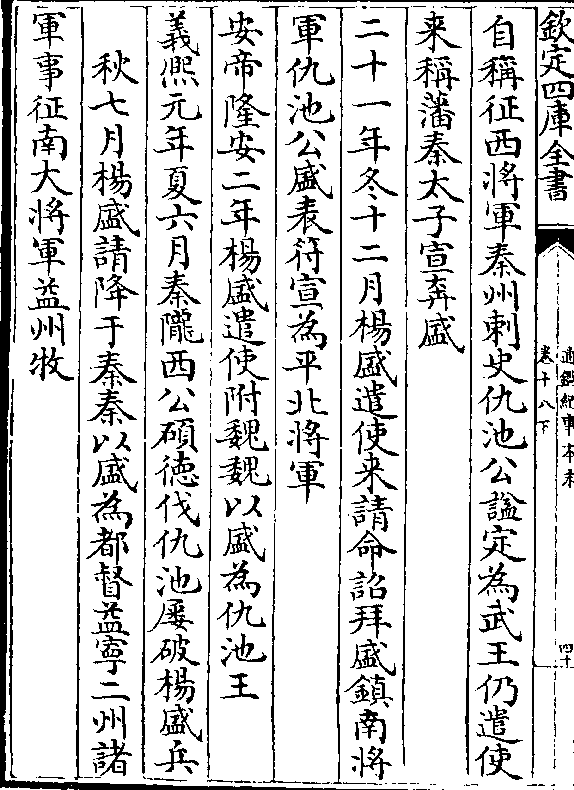 欽定四庫全書
通鑑紀事本末
卷十八下
四十
自稱征西將軍秦州刺史仇池公諡定為武王仍遣使
来稱藩秦太子宣奔盛
二十一年冬十二月楊盛遣使来請命詔拜盛鎮南將
軍仇池公盛表苻宣為平北將軍
安帝隆安二年楊盛遣使附魏魏以盛為仇池王
義熙元年夏六月秦隴西公碩德伐仇池屢破楊盛兵
秋七月楊盛請降于秦秦以盛為都督益寧二州諸
軍事征南大將軍益州牧